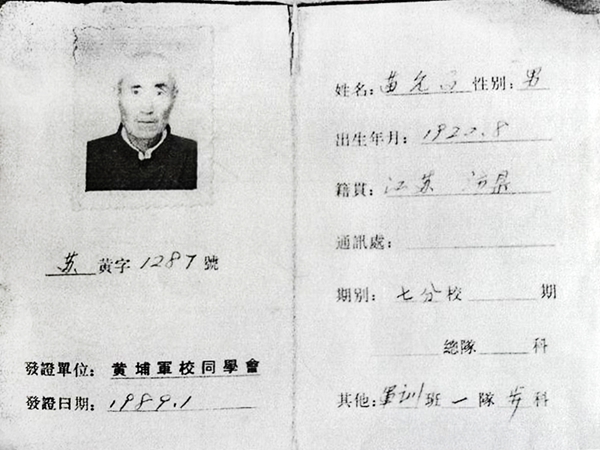 苏 黄字 1287 號
發證單位: 黄埔軍校同學會
發證日期: 1989.1
姓名: 苗 性別: 男
出生年月:
籍貫: 江苏
通訊處:
期別: 七分校 期
總隊 科
其他: 军训班一隊步科